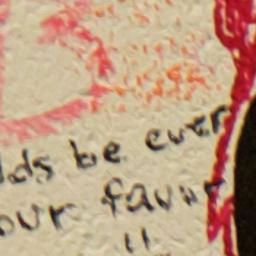 lds be ever
our favor
"